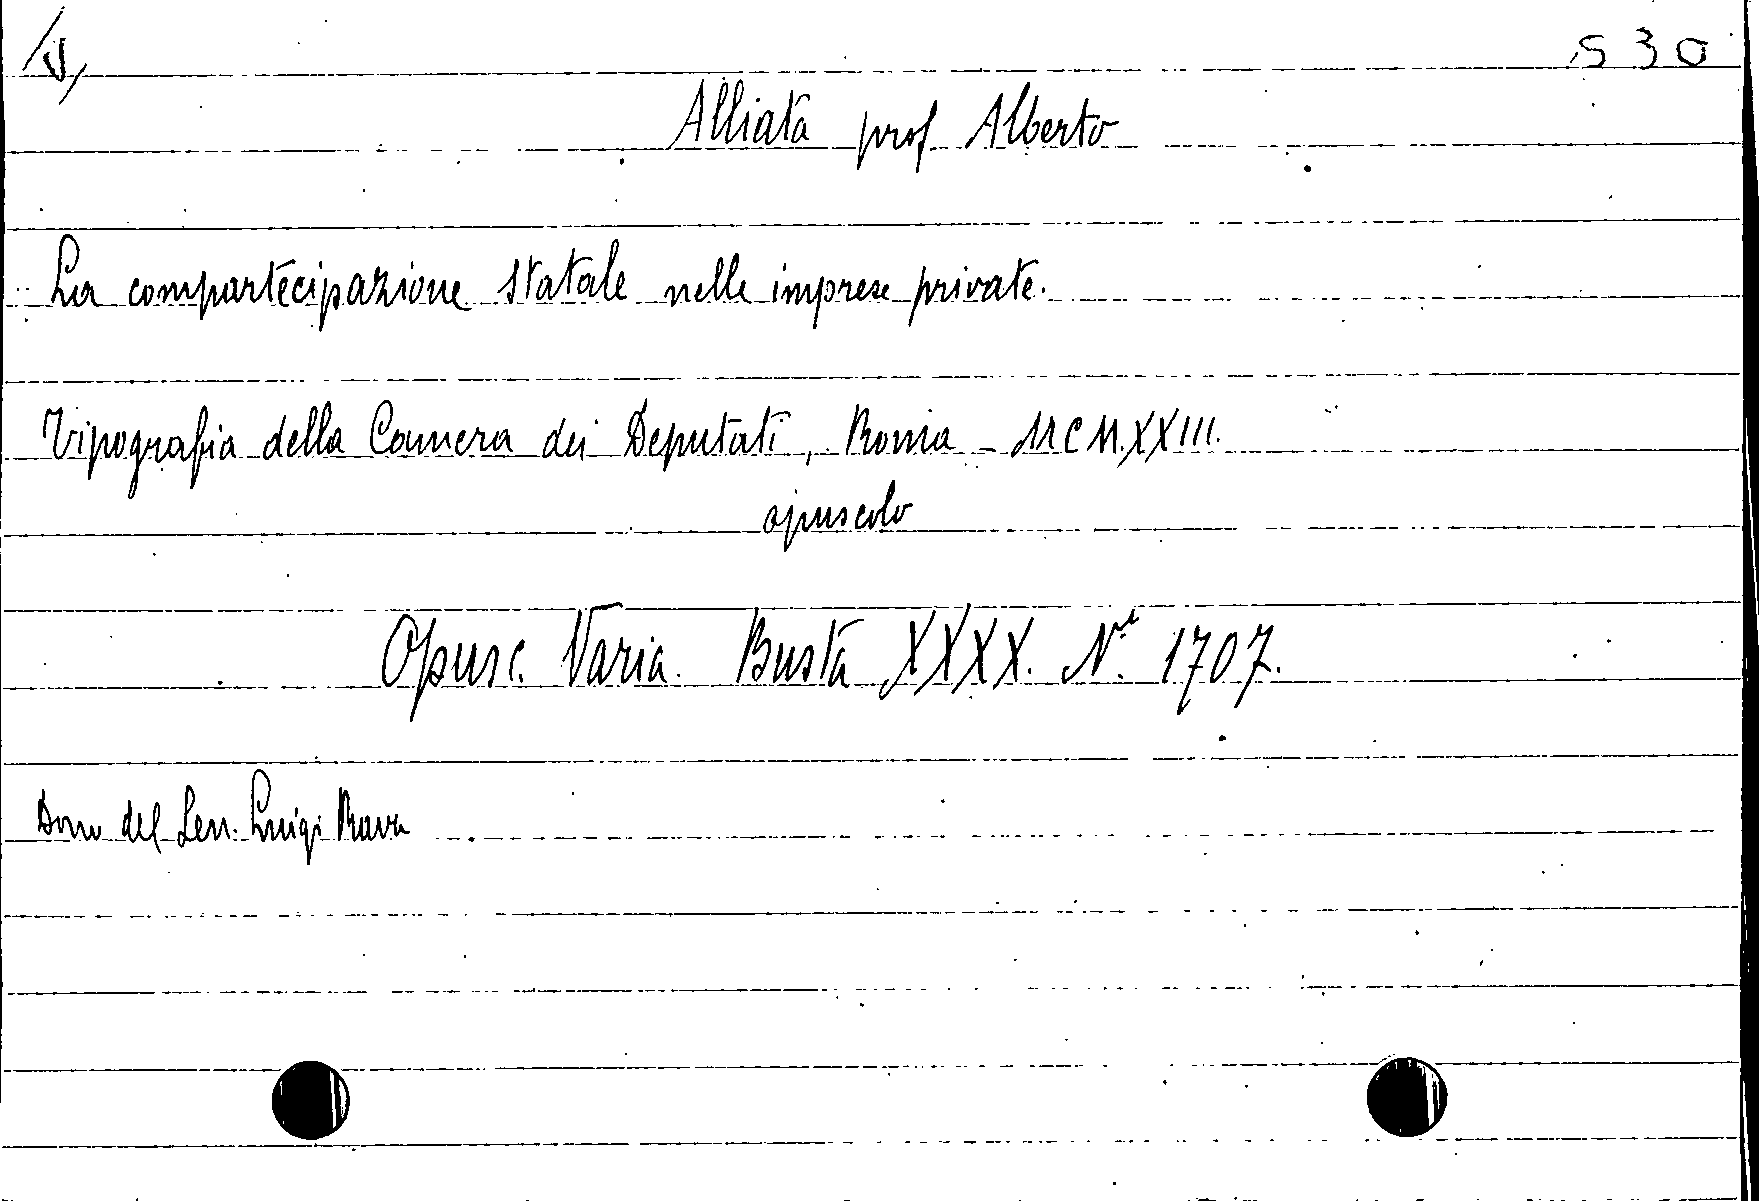 530
Alliata prof Alberto
La compartecipazione statale nelle imprese private.
Tipografia della Camera dei Deputati, Roma - MCM.XXIII.
opuscolo
Opusc. Varia. Busta XXXX. N. 1707.
Dono del Sen. Luigi Rava